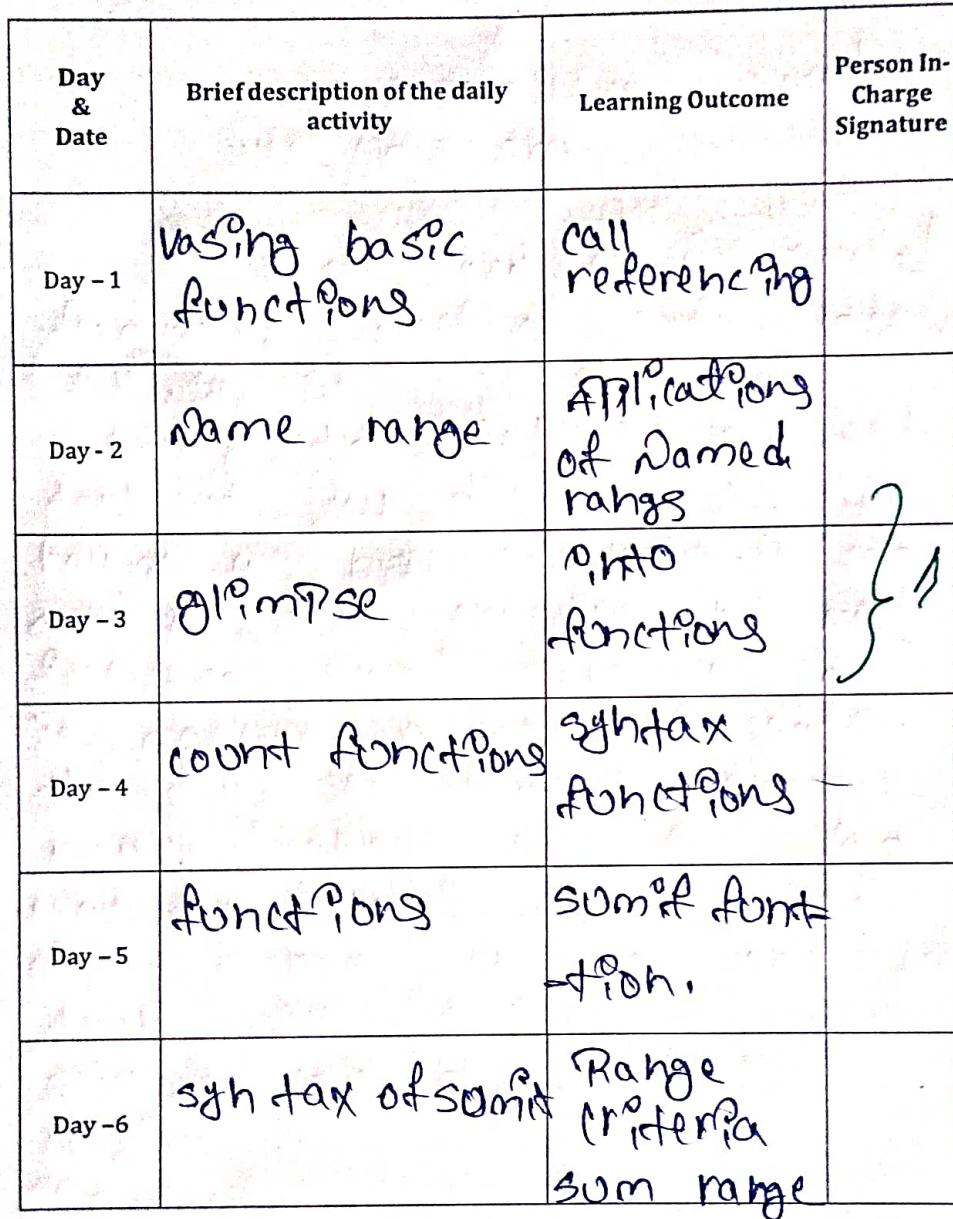 Day
&
Date
Brief description of the daily
activity
Learning Outcome
Person In-
Charge
Signature
Day – 1
vasing basic
functions
call
referencing
Day - 2
Name range
Applications
of Named
rangs
Day – 3
glimpse
into
functions
Day – 4
count functions
syntax
functions
Day – 5
functions
sumif funt
-tion.
Day –6
syn tax of sumif
Range
criteria
sum range